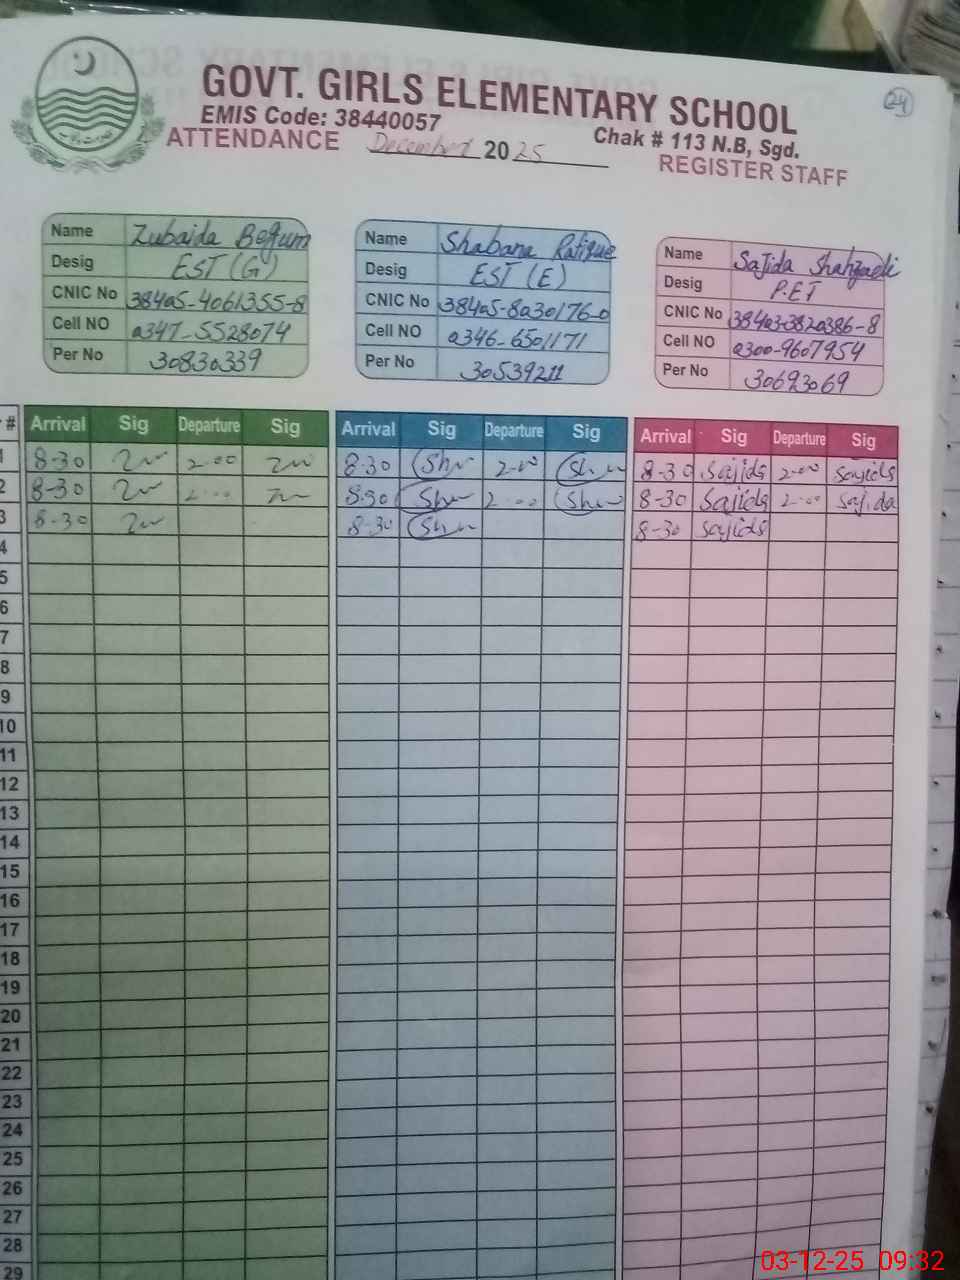 24
GOVT. GIRLS ELEMENTARY SCHOOL
EMIS Code: 38440057
Chak # 113 N.B, Sgd.
ATTENDANCE December 2025 REGISTER STAFF
Name Zubaida Begum
Desig EST (G)
CNIC No 38405-4061355-8
Cell NO 0347-5528074
Per No 30830339
Name Shabana Rafique
Desig EST (E)
CNIC No 38405-8030176-0
Cell NO 0346-6501171
Per No 30539211
Name Sajida Shahzadi
Desig P.ET
CNIC No 38403-3820386-8
Cell NO 0300-9607954
Per No 30693069
# Arrival Sig Departure Sig Arrival Sig Departure Sig Arrival Sig Departure Sig
1 8-30 2-00 8-30 Sh 2-00 Sh 8-30 Sajida 2-00 Sajida
2 8-30 2-00 8-30 Sh 2-00 Sh 8-30 Sajida 2-00 Sajida
3 8-30 8-30 Sh 8-30 Sajida
4
5
6
7
8
9
10
11
12
13
14
15
16
17
18
19
20
21
22
23
24
25
26
27
28
29
03-12-25 09:32